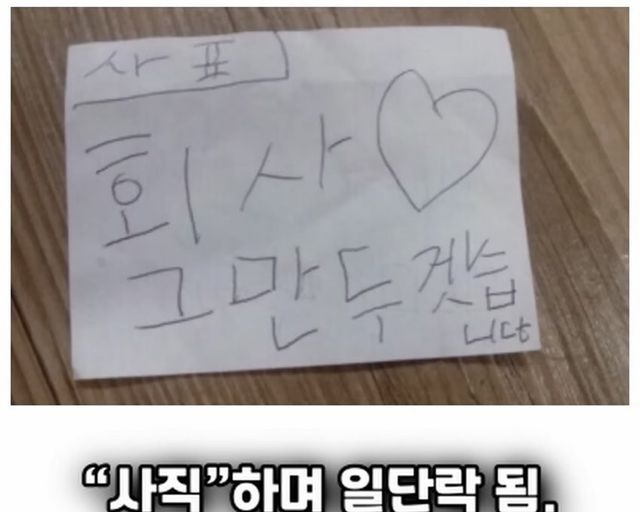 사표
회사♡
그만두겟습
니다
“사직”하며 일단락 됨.